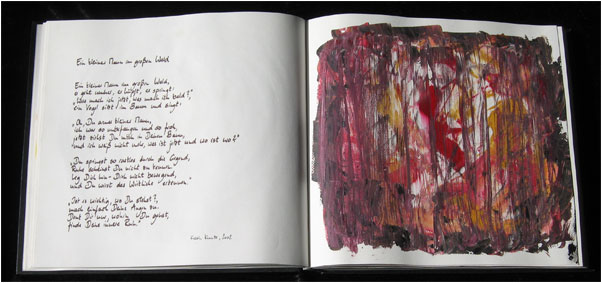 Ein kleiner Mann im großen Wald
Ein kleiner Mann im großen Wald,
er geht umher, er hüpft, er springt.
"Was mach ich jetzt, was mach ich bald?"
ein Vogel sitzt im Baum und singt:
"Oh, Du armer kleiner Mann,
ich war so unbefangen und so froh,
jetzt siehst Du mich in Deinem Bann,
und ich weiß nicht mehr, was ist jetzt und wo ist wo?"
"Du springst so rastlos durch die Gegend,
Ruhe scheinst Du nicht zu kennen.
Leg Dich hin - Dich nicht bewegend,
und Du wirst das Wirkliche erkennen."
"Ist es wichtig, wo Du stehst?,
mach einfach Deine Augen zu.
Denk Dir nur, wohin Du gehst,
finde Deine innere Ruh."
2002